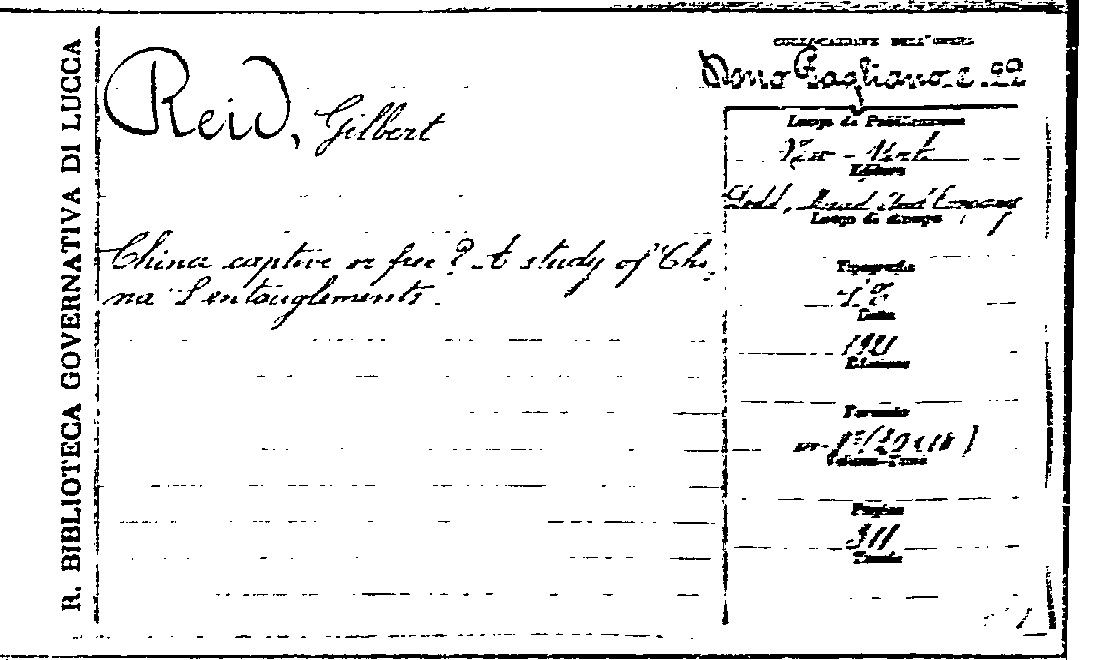 R. BIBLIOTECA GOVERNATIVA DI LUCCA
Reid, Gilbert
China captive or free? A study of Chi-
na's entanglements.
COLLOCAZIONE DELL'OPERA
Dono Pagliano. C. 22
Luogo di Pubblicazione
New-York
Editore
Dodd, Mead and Company
Luogo di stampa
Tipografia
Data
1921
Edizione
Formato
in-8º
Volume-Tomo
Pagine
311
Tavole